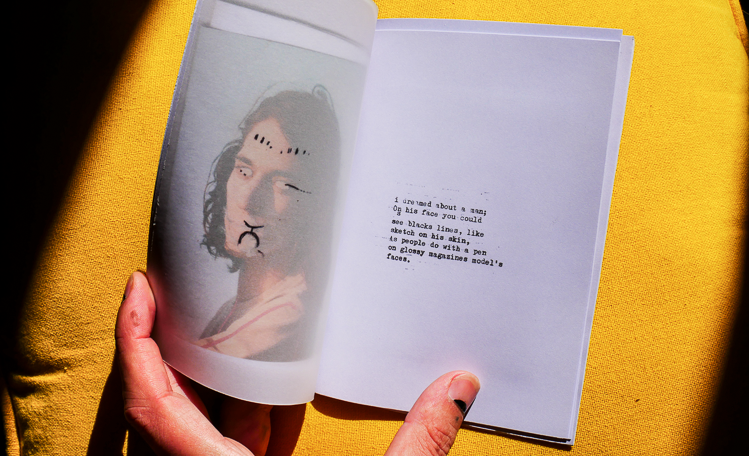 i dreamed about a man;
On his face you could
see blacks lines, like
sketch on his skin,
as people do with a pen
on glossy magazines model's
faces.